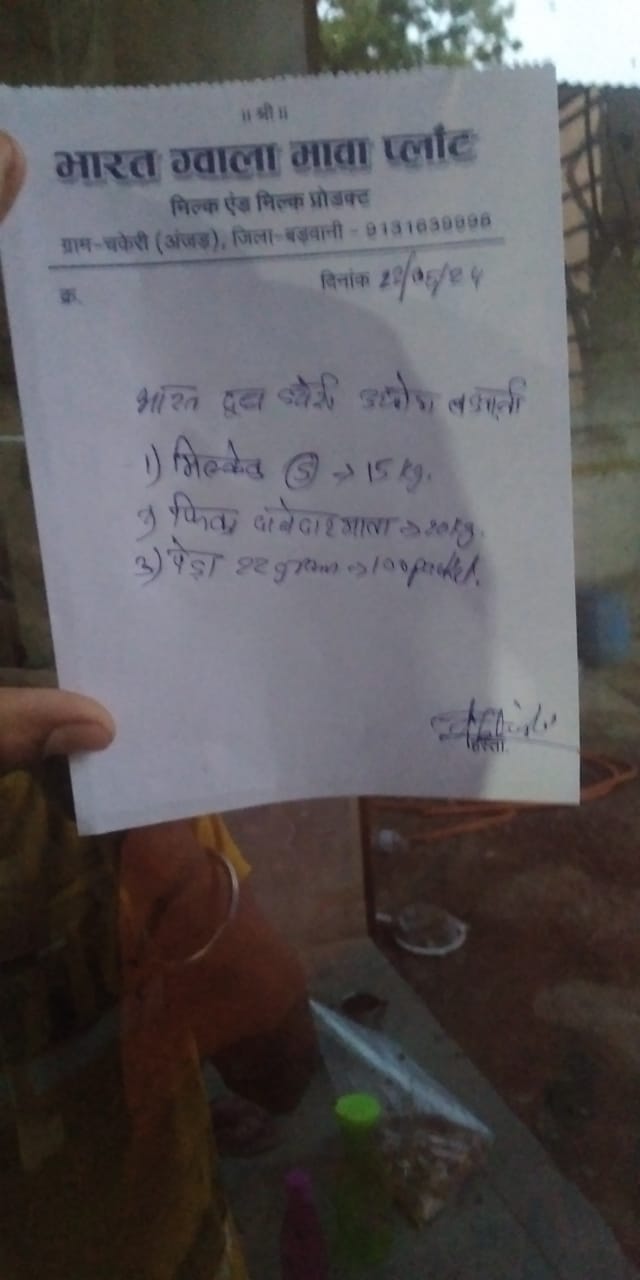 ॥ श्री ॥
भारत ग्वाला मावा प्लाँट
मिल्क एंड मिल्क प्रोडक्ट
ग्राम-चकेरी (अंजड़), जिला-बड़वानी - 9131639996
क्र.
दिनांक 22/05/24
भारत दुध डेयरी
1) मिल्केक S → 15 kg.
2) फिका दानेदार मावा → 20kg.
3) पेड़ा 22 gram → 100 packet.
हस्ता.